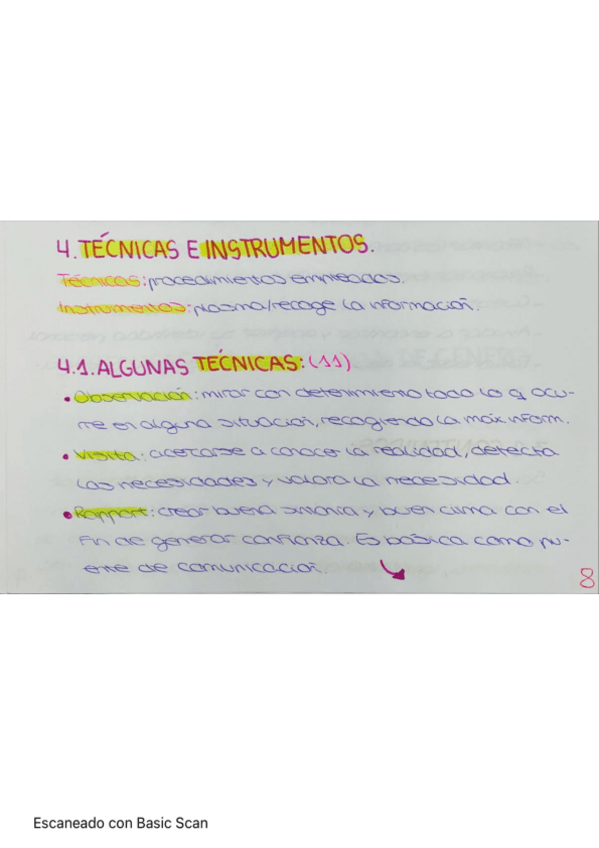 4. TÉCNICAS E INSTRUMENTOS.
Técnicas: procedimientos empleados.
Instrumentos: plasma/recoge la información.
4.1. ALGUNAS TÉCNICAS: (11)
• Observación: mirar con detenimiento todo lo q ocu-
rre en alguna situación, recogiendo la máx inform.
• Visita: acercarse a conocer la realidad, detecta
las necesidades y valora la necesidad.
• Rapport: crear buena sintonía y buen clima con el
fin de generar confianza. Es básica como pu-
ente de comunicación.
8
Escaneado con Basic Scan